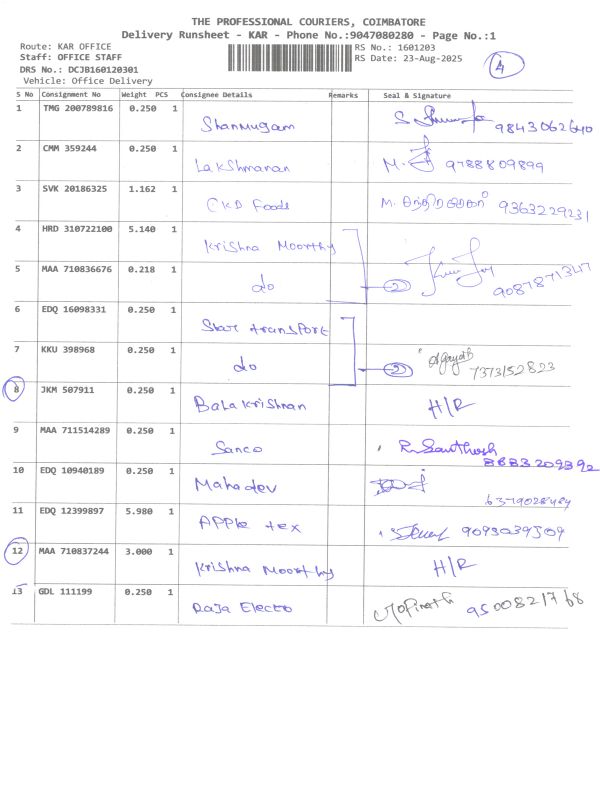 THE PROFESSIONAL COURIERS, COIMBATORE
Delivery Runsheet - KAR - Phone No.:9047080280 - Page No.:1
Route: KAR OFFICE RS No.: 1601203
Staff: OFFICE STAFF RS Date: 23-Aug-2025
DRS No.: DCJB160120301
Vehicle: Office Delivery
4
S No Consignment No Weight PCS Consignee Details Remarks Seal & Signature
1 TMG 200789816 0.250 1 Shanmugam 9843062640
2 CMM 359244 0.250 1 Lakshmanan M. 9788809899
3 SVK 20186325 1.162 1 CKD Foods M. 9363229231
4 HRD 310722100 5.140 1 Krishna Moorthy
5 MAA 710836676 0.218 1 do 2 9087871347
6 EDQ 16098331 0.250 1 Star transport
7 KKU 398968 0.250 1 do 2 7373152823
8 JKM 507911 0.250 1 Balakrishnan H/R
9 MAA 711514289 0.250 1 Sanco R. Santhosh
8883209392
10 EDQ 10940189 0.250 1 Mahadev
11 EDQ 12399897 5.980 1 Apple tex 9095039509
12 MAA 710837244 3.000 1 Krishna Moorthy H/R
13 GDL 111199 0.250 1 Raja Electro Gopinath 9500821768